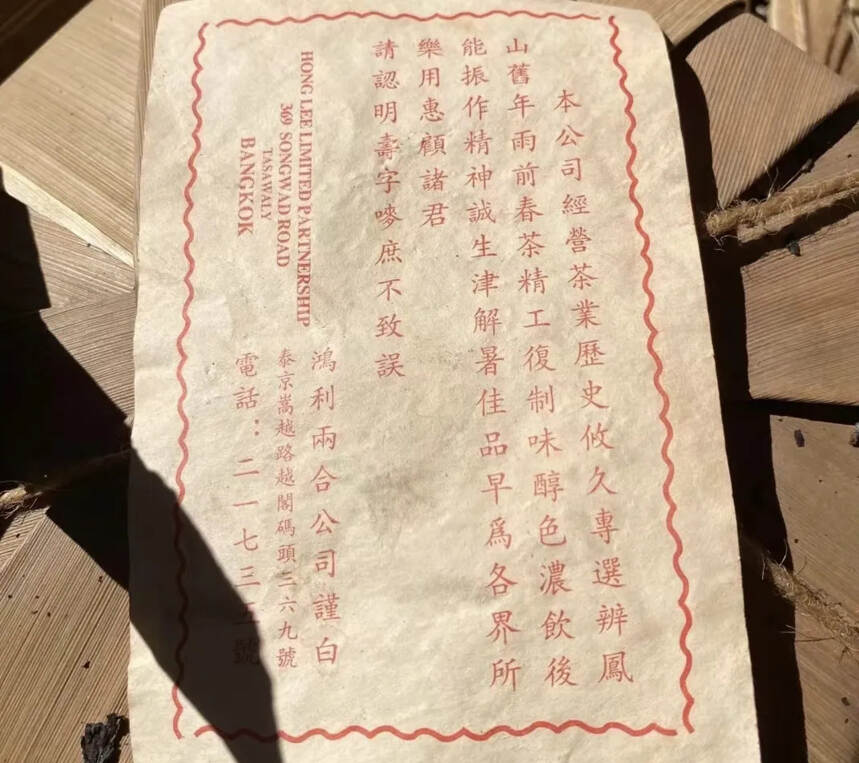 本公司經營茶業歷史攸久專選辨鳳
山舊年雨前春茶精工復制味醇色濃飲後
能振作精神誠生津解暑佳品早爲各界所
樂用惠顧諸君
請認明壽字嘜庶不致誤
HONG LEE LIMITED PARTNERSHIP
369 SONGWAD ROAD
TASAWALY
BANGKOK
鴻利兩合公司謹白
泰京嵩越路越閣碼頭三六九號
電話：二一七三五號